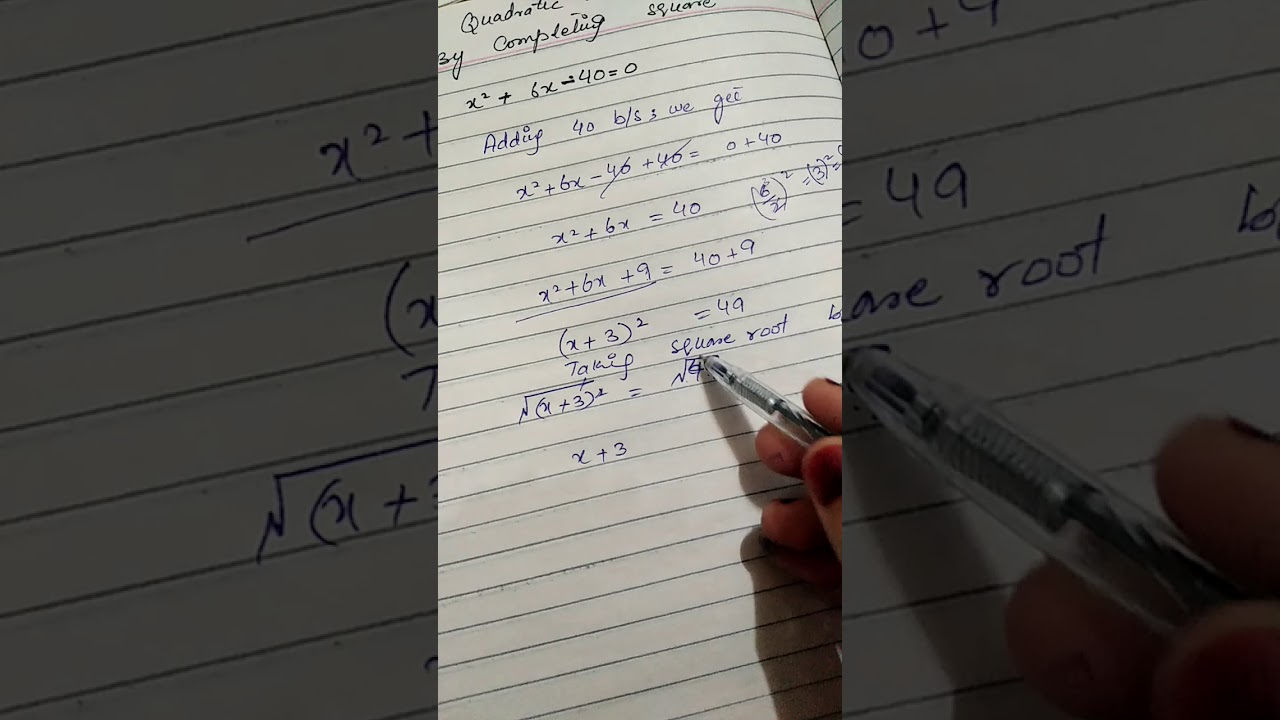 Quadratic
By Completing square
x² + 6x - 40 = 0
Adding 40 b/s ; we get
x² + 6x - 40 + 40 = 0 + 40
x² + 6x = 40 (6/2)² = (3)² =
x² + 6x + 9 = 40 + 9
(x + 3)² = 49
Taking square root
√(x + 3)² = √4
x + 3